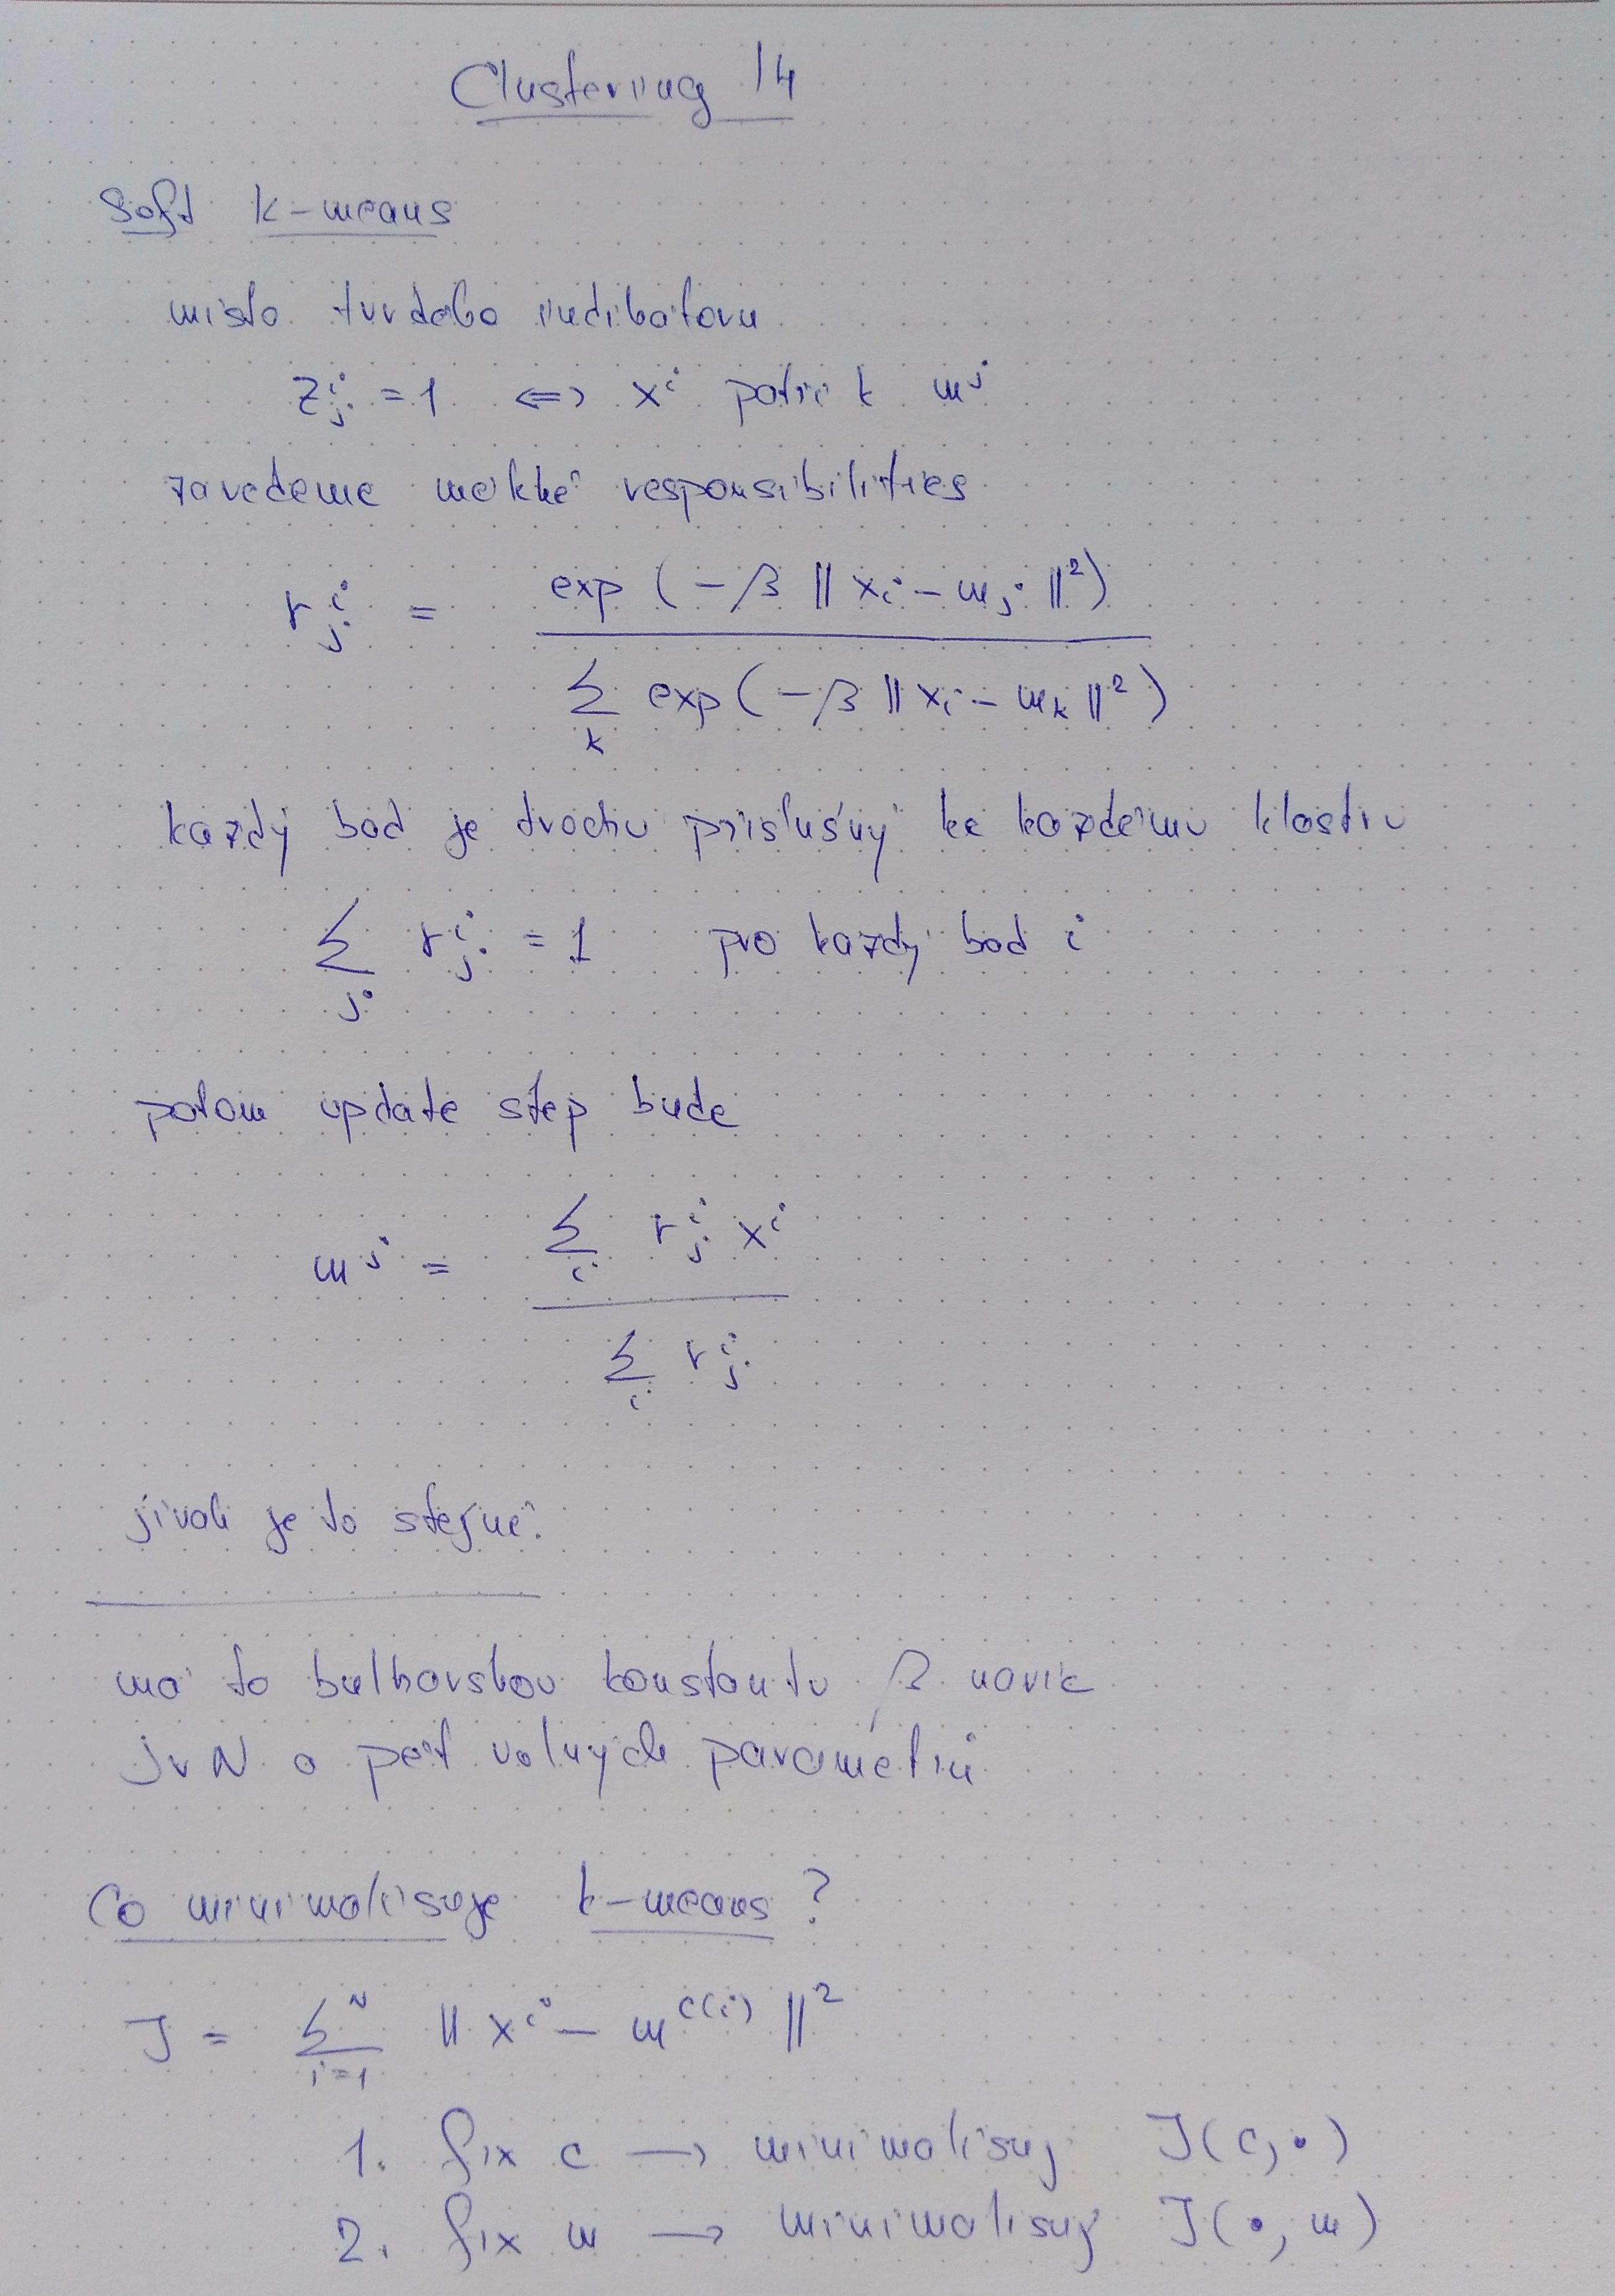 Clustering 14
Soft k-means
místo tvrdého indikátoru
z_j^i = 1 ⟺ x^i patří k m^j
zavedeme měkké responsibilities
r_j^i = exp(-β ‖x_i - m_j‖²) / Σ_k exp(-β ‖x_i - m_k‖²)
každý bod je trochu příslušný ke každému klastru
Σ_j r_j^i = 1 pro každý bod i
potom update step bude
m^j = Σ_i r_j^i x^i / Σ_i r_j^i
jinak je to stejné.
má to bulharskou konstantu β navíc
JvN o pěti volných parametrů
Co minimalisuje k-means?
J = Σ_{i=1}^N ‖x^i - m^{c(i)}‖²
1. fix c → minimalisuj J(c, •)
2. fix m → minimalisuj J(•, m)